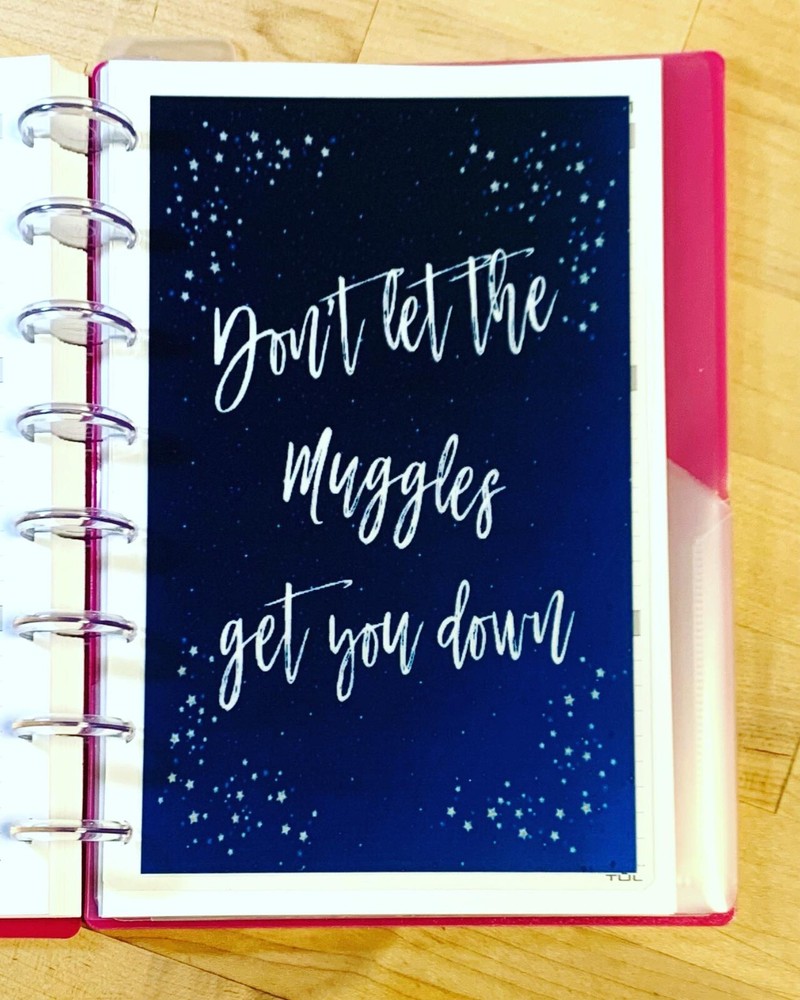 Don't let the
Muggles
get you down
TUL